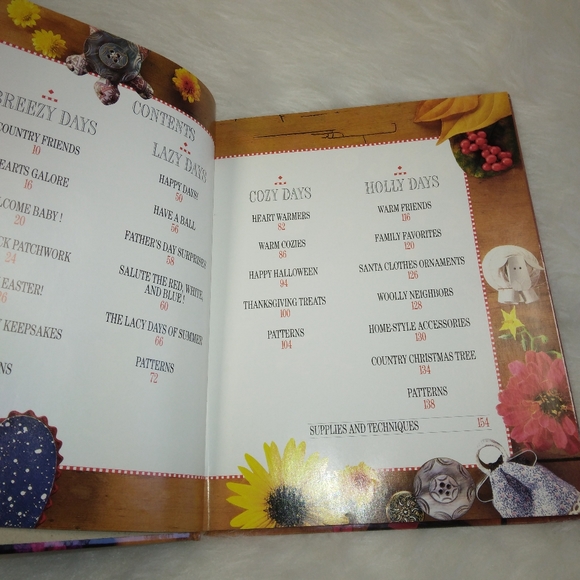 CONTENTS
BREEZY DAYS
COUNTRY FRIENDS
10
HEARTS GALORE
16
LCOME BABY!
20
CK PATCHWORK
24
EASTER!
26
KEEPSAKES
NS
LAZY DAYS
HAPPY DAYS!
56
HAVE A BALL
56
FATHER'S DAY SURPRISES
58
SALUTE THE RED, WHITE,
AND BLUE!
60
THE LACY DAYS OF SUMMER
66
PATTERNS
72
COZY DAYS
HEART WARMERS
82
WARM COZIES
86
HAPPY HALLOWEEN
94
THANKSGIVING TREATS
100
PATTERNS
104
HOLLY DAYS
WARM FRIENDS
116
FAMILY FAVORITES
120
SANTA CLOTHES ORNAMENTS
126
WOOLLY NEIGHBORS
128
HOME-STYLE ACCESSORIES
130
COUNTRY CHRISTMAS TREE
134
PATTERNS
138
SUPPLIES AND TECHNIQUES 154